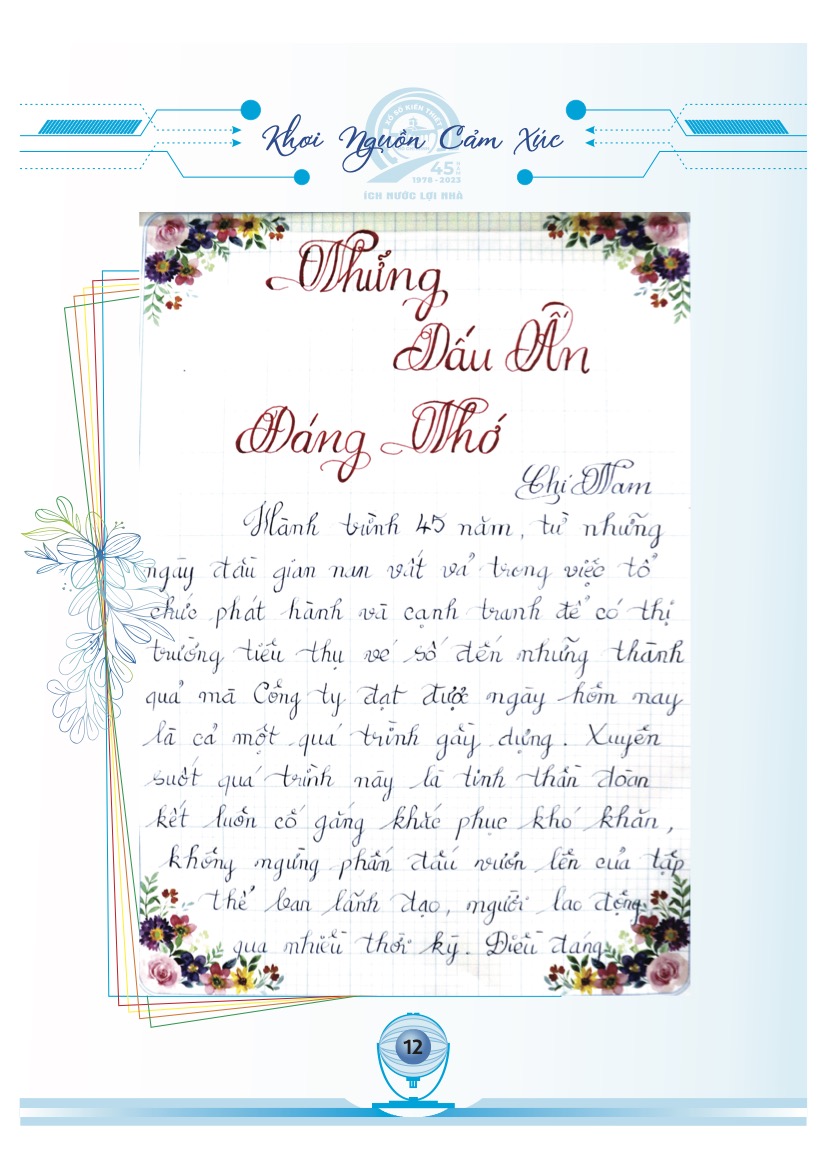 XỔ SỐ KIẾN THIẾT
Khơi Nguồn Cảm Xúc
45 NĂM
1978 - 2023
ÍCH NƯỚC LỢI NHÀ
Những
Dấu Ấn
Đáng Nhớ
Chí Nam
Hành trình 45 năm, từ những
ngày đầu gian nan vất vả trong việc tổ
chức phát hành và cạnh tranh để có thị
trường tiêu thụ vé số đến những thành
quả mà Công ty đạt được ngày hôm nay
là cả một quá trình gầy dựng. Xuyên
suốt quá trình này là tinh thần đoàn
kết luôn cố gắng khắc phục khó khăn,
không ngừng phấn đấu vươn lên của tập
thể ban lãnh đạo, người lao động
qua nhiều thời kỳ. Điều đáng
12